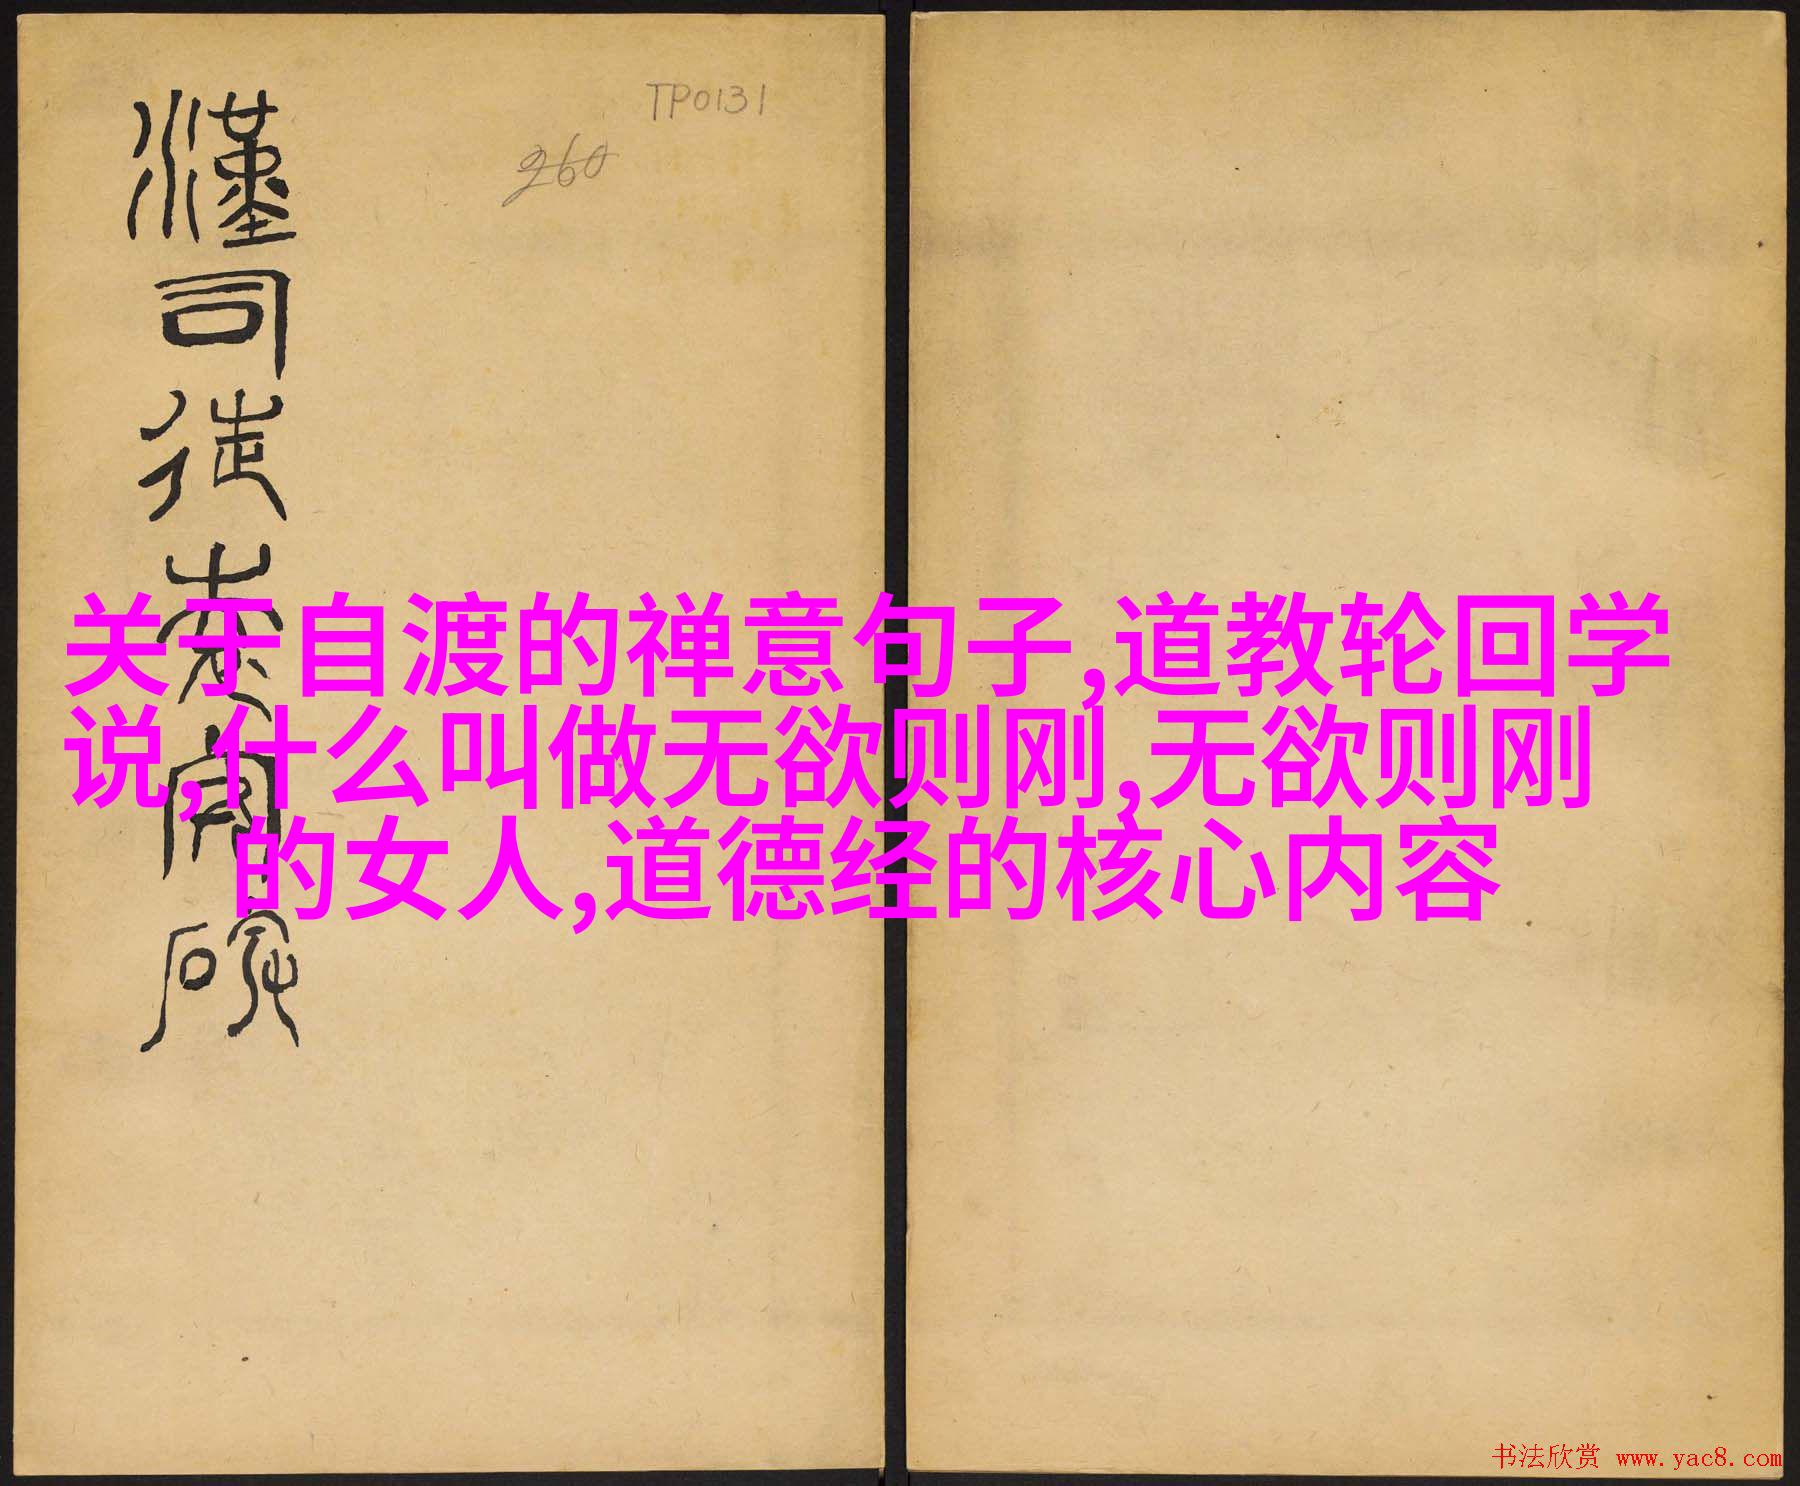 TP0131
260
漢司徒袁安碑
关于自渡的禅意句子,道教轮回学
说,什么叫做无欲则刚,无欲则刚
的女人,道德经的核心内容
书法欣赏 www.yac8.com